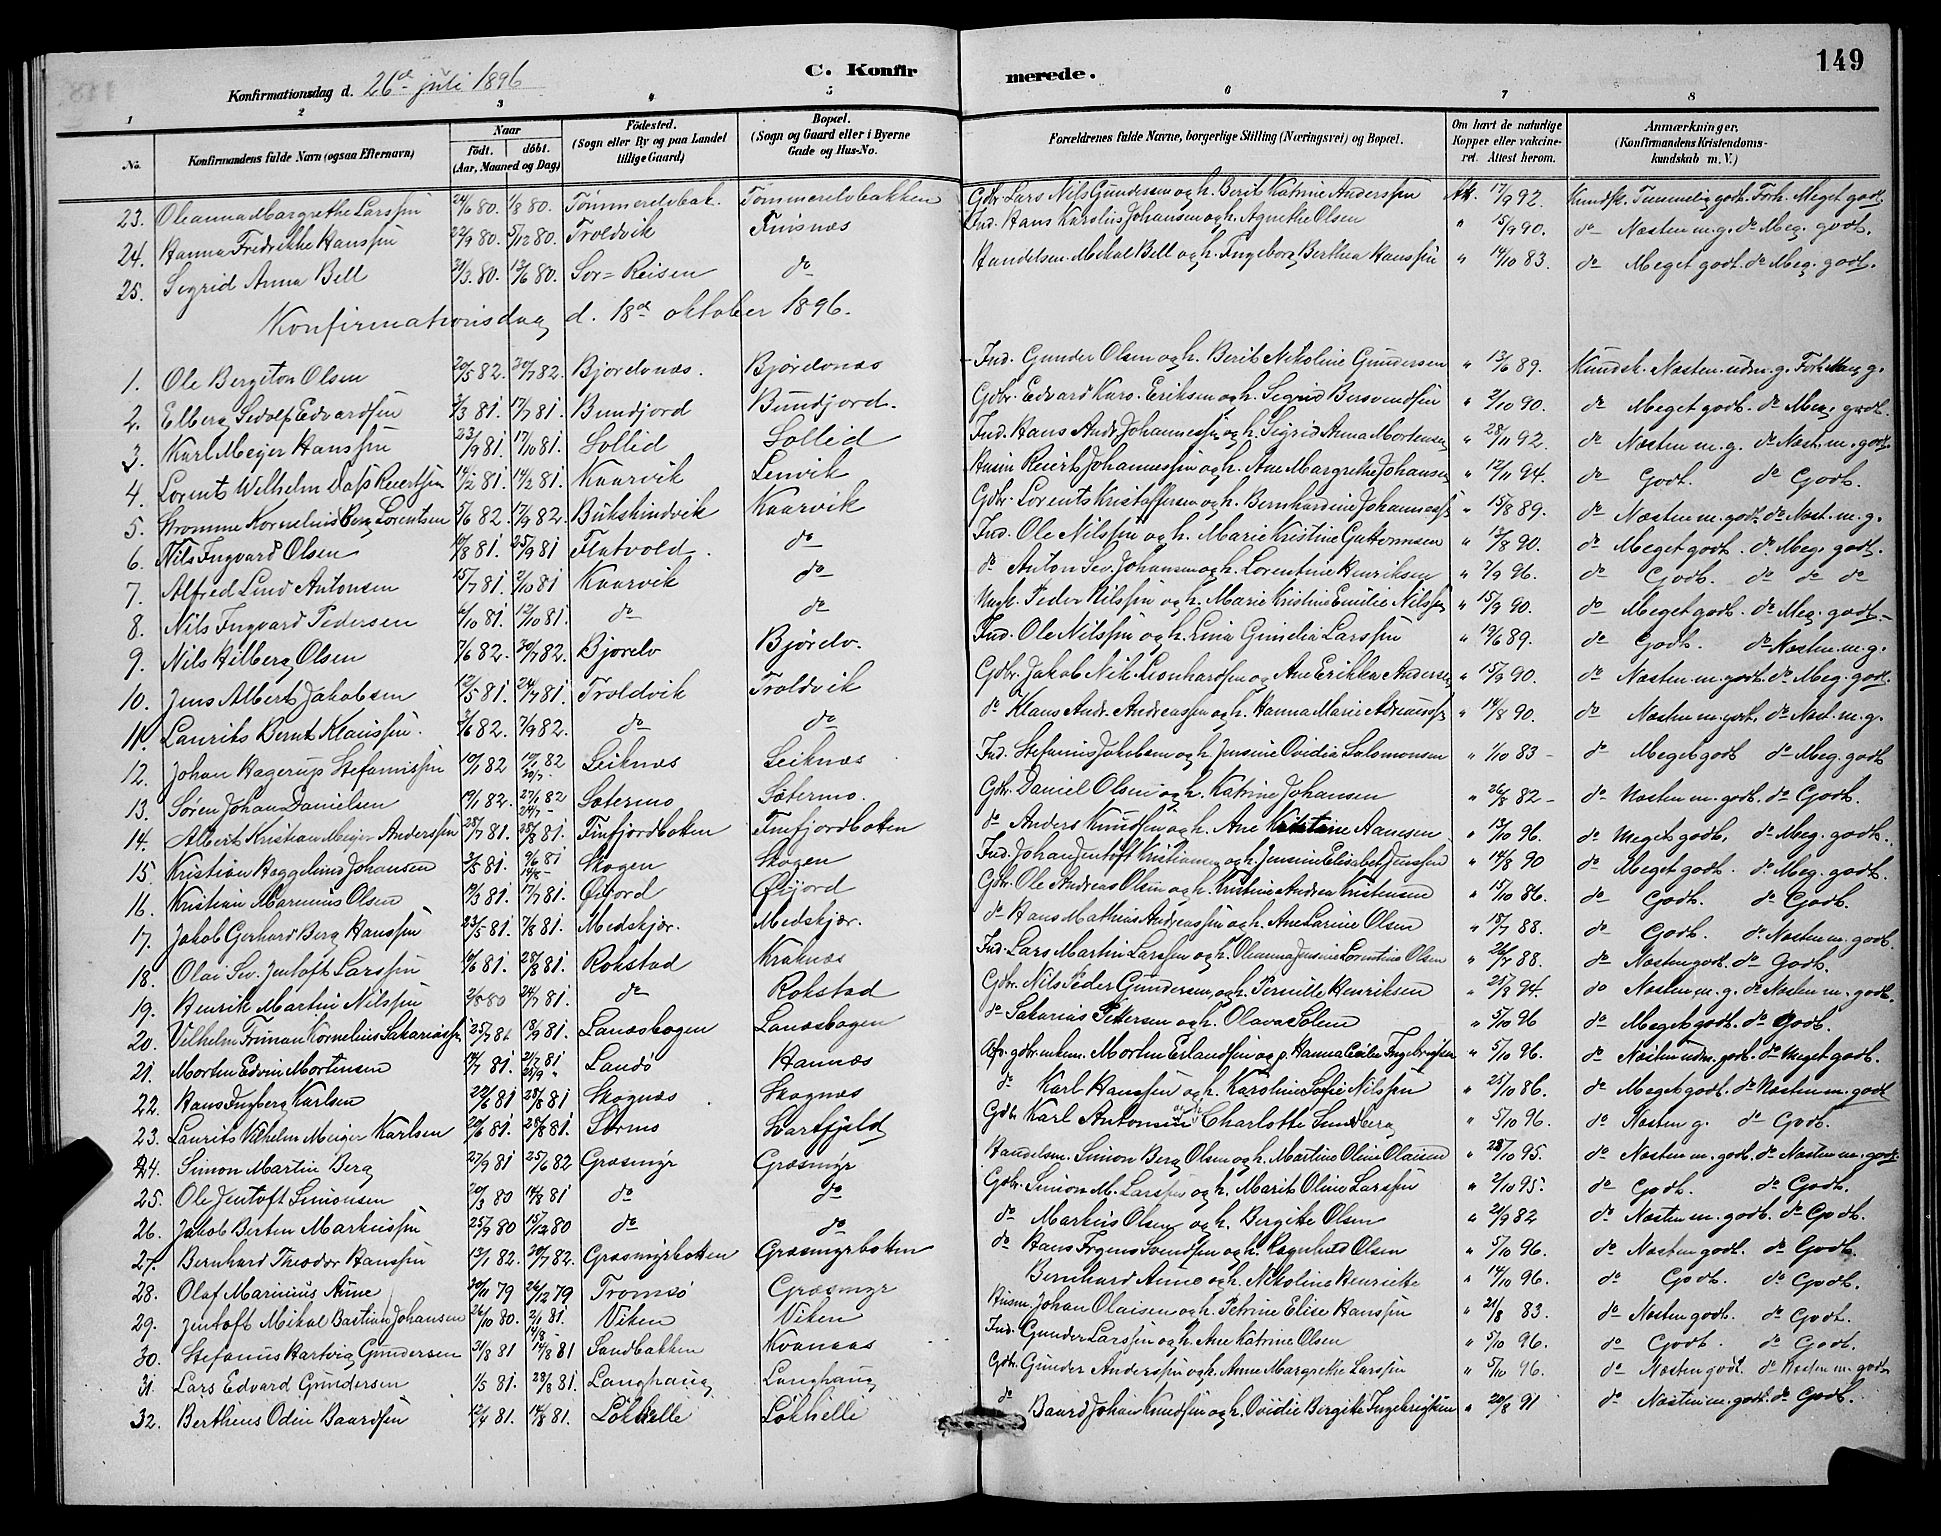 149
C. Konfirmerede.
Konfirmationsdag d. 26de juli 1896
1 2 3 4 5 6 7 8
No. Konfirmandens fulde Navn (ogsaa Efternavn) Naar født. døbt. (Aar, Maaned og Dag) Fødested. (Sogn eller By og paa Landet tillige Gaard) Bopæl. (Sogn og Gaard eller i Byerne Gade og Hus-No. Forældrenes fulde Navne, borgerlige Stilling (Næringsvei) og Bopæl. Om havt de naturlige Kopper eller vakcineret. Attest herom. Anmærkninger. (Konfirmandens Kristendomskundskab m. V.)
23. Oleanna Margrethe Larssen 24/6 80. 1/8 80. Tømmerelvbak. Tømmerelvbakken Gbr. Lars Nils Gundersen og h. Berit Katrine Anderssen Att. 17/9 92. Kundsk. Temmelig godt. Forh. Meget godt.
24. Hanna Fredrikke Hanssen 22/9 80. 5/12 80. Troldvik Finsnæs Ind. Hans Karolius Johansen og h. Agnethe Olsen " 15/9 90. do Næsten m. g. do Meg. godt.
25. Sigrid Anna Bell 31/3 80. 13/6 80. Sør-Reisen do Handelsm. Mikal Bell og h. Ingeborg Berthea Hanssen " 14/10 83. do Meget godt. do Meg. godt.
Konfirmationsdag d. 18de oktober 1896.
1. Ole Bergiton Olsen 20/5 82. 30/7 82. Bjordvnæs. Bjørdvnæs Ind. Gunder Olsen og h. Berit Nikoline Gundersen " 13/6 89. Kundsk. Næsten udm. g. Forh. Meg. g.
2. Elberg Sedolf Edvardsen 3/3 81. 17/7 81. Bundjord Bundjord. Gbr. Edvard Karo. Eriksen og h. Sigrid Bersvendsen " 2/10 90. do Meget godt. do Meg. godt.
3. Karl Meyer Hanssen 23/9 81. 17/10 81. Sollid Sollid Ind. Hans Andr. Johannessen og h. Sigrid Anna Mortensen " 28/11 92. do Næsten m. g. do Næst. m. godt.
4. Lorents Welhelm Dass Reiertsen 14/2 81. 14/2 81. Kaarvik Lenvik Husm. Reiert Johannessen og h. Ane Margrethe Johansen " 12/11 94. do Godt. do Godt.
5. Strømme Kornelius Berg Lorentsen 5/6 82. 17/9 82. Bukskindvik Kaarvik Gbr. Lorents Kristoffersen og h. Bernhardine Johanness. " 15/8 89. do Næsten m. godt. do Næst. m. g.
6. Nils Ingvard Olsen 10/8 81. 25/9 81 Flatvold. do Ind. Ole Nilssen og h. Marie Kristine Guttormsen " 13/8 90. do Meget godt. do Meg. godt.
7. Alfred Lind Antonsen 15/7 81. 2/10 81 Kaarvik do do Anton Sev. Johansen og h. Lorentine Henriksen " 7/9 96. do Godt. do do do
8. Nils Ingvard Pedersen 6/10 81. 12/10 81. do do Peder Nilssen og h. Marie Kristine Emilie Nilssen " 15/9 90. do Meget godt. do Meg. godt.
9. Nils Hilberg Olsen 7/6 82. 30/7 82. Bjorelv Bjørelv. Ind. Ole Nilssen og h. Lina Gunelia Larssen " 19/6 89. do Godt. do Næsten m. g.
10. Jens Albert Jakobsen 12/5 81. 24/7 81. Troldvik Troldvik Gbr. Jakob Nik. Leonhardsen og Ane Erikka Andersen " 15/9 90. do Næsten m. godt. do Meg. godt.
11. Laurits Bernt Klaussen. 3/6 82. 7/9 82. do do do Klaus Andr. Andreassen og h. Hanna Marie " 14/8 90. do Næsten m. godt. do Næst. m. g.
12. Johan Hagerup Stefanussen 10/1 82 Leiknæs Leiknæs Ind. Stefanus Jakobsen og h. Jensine Ovidia Salomonsen " 1/10 83 do Meget godt do Meg. godt
13. Søren Johan Danielsen 19/1 82. 27/1 82 Sætermo Sætermo. Gbr. Daniel Olsen og h. Katrine Johansen " 26/8 82 do Næsten m. godt. do Godt.
14. Albert Kristian Meyer Anderssen 25/7 81. 28/8 81. Finfjordbotten Finfjordbotten do Anders Knudsen og h. Ane Kristine Aanesen " 13/10 96. do Meget godt. do Meg. godt.
15. Kristian Heggelund Johansen 3/5 81. 9/6 81 14/8 Skogen Skogen Ind. Johan Jentoft Kristiansen og h. Jensine Elisabet Jenssen " 14/8 90 do Meget godt. do Meg. godt.
16. Kristian Marenius Olsen 19/3 81. 17/7 81. Øijord Øijord Gbr. Ole Andreas Olsen og h. Kristine Andrea Kristensen " 15/10 86. do Godt. do Godt.
17. Jakob Gerhard Berg Hanssen 23/5 81. 7/8 81. Medskjær. Medskjær. do Hans Mathias Andreassen og h. Ane Larine Olsen " 18/7 88. do Godt. do Næsten m. godt.
18. Olai Sev. Jentoft Larssen 10/6 81. 28/8 81. Rokstad Kraknæs Ind. Lars Martin Larssen og h. Oleanna Jensine Lorentine Olsen " 26/7 88. do Næsten godt. do Godt.
19. Henrik Martin Nilssen 2/8 80 24/7 81. do Rokstad Gbr. Nils Peder Gundersen og h. Pernille Henriksen " 25/8 94. do Næsten m. g. do Næsten m. godt.
20. Vilhelm Friman Kornelius Sakariass. 25/7 81 18/9 81. Lanæsbogen Lanæsbogen do Sakarias Pettersen og h. Olava Solem " 5/10 96 do Meget godt. do Godt.
21. Morten Edvin Mortensen 14/7 81. 31/7 81 25/9 Landø Hannæs Morten Erlandsen og Hanna Ingebrigtsen " 5/10 96. do Næsten udm. godt. do Meget godt.
22. Hans Ingberg Karlsen 22/6 81 28/8 81 Skognæs Skognæs do Karl Hanssen og h. Karoline Sofie Nilssen " 25/10 86. do Meget godt. do Næsten m. godt
23. Laurits Vilhelm Meiger Karlsen 20/6 81. 28/8 81. Sørmo Svartfjeld Gbr. Karl Antonsen og h. Charlotte Sundberg " 5/10 96. do Næsten g. do Godt.
24. Simon Martin Berg 27/9 81 25/6 82 Græsmyr Græsmyr Handelsm. Simon Berg Olsen og h. Martine Oline Olausen " 28/10 95. do Næsten m. godt. do Næsten m. godt.
25. Ole Jentoft Simonsen 20/3 80 14/8 81 do do Gbr. Simon M. Larssen og h. Marit Oline Larssen " 2/10 95. do Godt. do Godt.
26. Jakob Bertin Markussen 25/9 80 15/12 80 do do do Markus Olsen og h. Bergitte Olsen " 21/9 82 do Næsten m. godt. do Godt.
27. Bernhard Theodor Hanssen 13/1 82. 20/7 82. Græsmyrbotten Græsmyrbotten do Hans Svendsen og h. Ragnhild Olsen " 5/10 96. do Næsten godt. do Godt.
28. Olaf Marinius Aune 20/11 79 26/12 79 Tromsø Græsmyr Bernhard Aune og h. Nikoline Henriette " 14/10 96. do Godt. do Godt.
29. Jentoft Mikal Bastian Johansen 26/10 80. 2/1 81. 14/8 Viken Viken Husm. Johan Olaisen og h. Petrine Elise Hanssen " 21/8 83. do Næsten godt. do Godt.
30. Stefanus Hartvig Gundersen 31/8 81 14/8 81 Sandbakken Kvannaas Ind. Gunder Larssen og h. Ane Katrine Olsen " 5/10 96. do Godt do Godt.
31. Lars Edvard Gundersen 1/5 81. 28/8 81. Langhaug Langhaug Gbr. Gunder Anderssen og h. Anne Margrethe Larssen " 5/10 96. do Næsten godt. do Næsten m. godt
32. Bertheus Odin Baardsen 12/4 81. 14/8 81. Løkhelle Løkhelle do Baard Johan Knudsen og h. Ovidie Bergitte Ingebrigtsen " 20/8 91 do Næsten m. godt. do Godt.